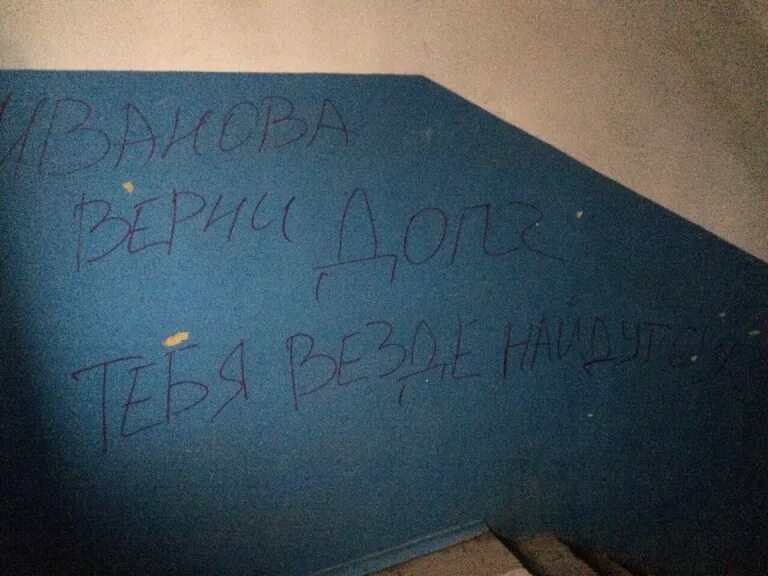 ИВАНОВА
ВЕРНИ ДОЛГ
ТЕБЯ ВЕЗДЕ НАЙДУТ